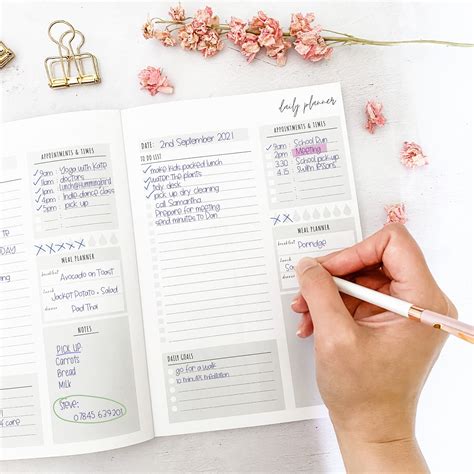 APPOINTMENTS & TIMES
9am Yoga with Kate
11am doctors
1pm lunch@Hummingbird
4pm Indie dance class
6pm pick up
MEAL PLANNER
breakfast
Avocado on Toast
lunch
Jacket Potato + Salad
dinner
Pad Thai
NOTES
PICK UP:
Carrots
Bread
Milk
Steve:
07845 639201
daily planner
DATE: 2nd September 2021
TO DO LIST
make kids packed lunch
water the plants
tidy desk
pick up dry cleaning
call Samantha
Prepare for meeting
send minutes to Dan
DAILY GOALS
go for a walk
10 minute meditation
APPOINTMENTS & TIMES
9am School Run
2pm Meeting
3.30 School pick up
MEAL PLANNER
breakfast
Porridge
lunch
dinner